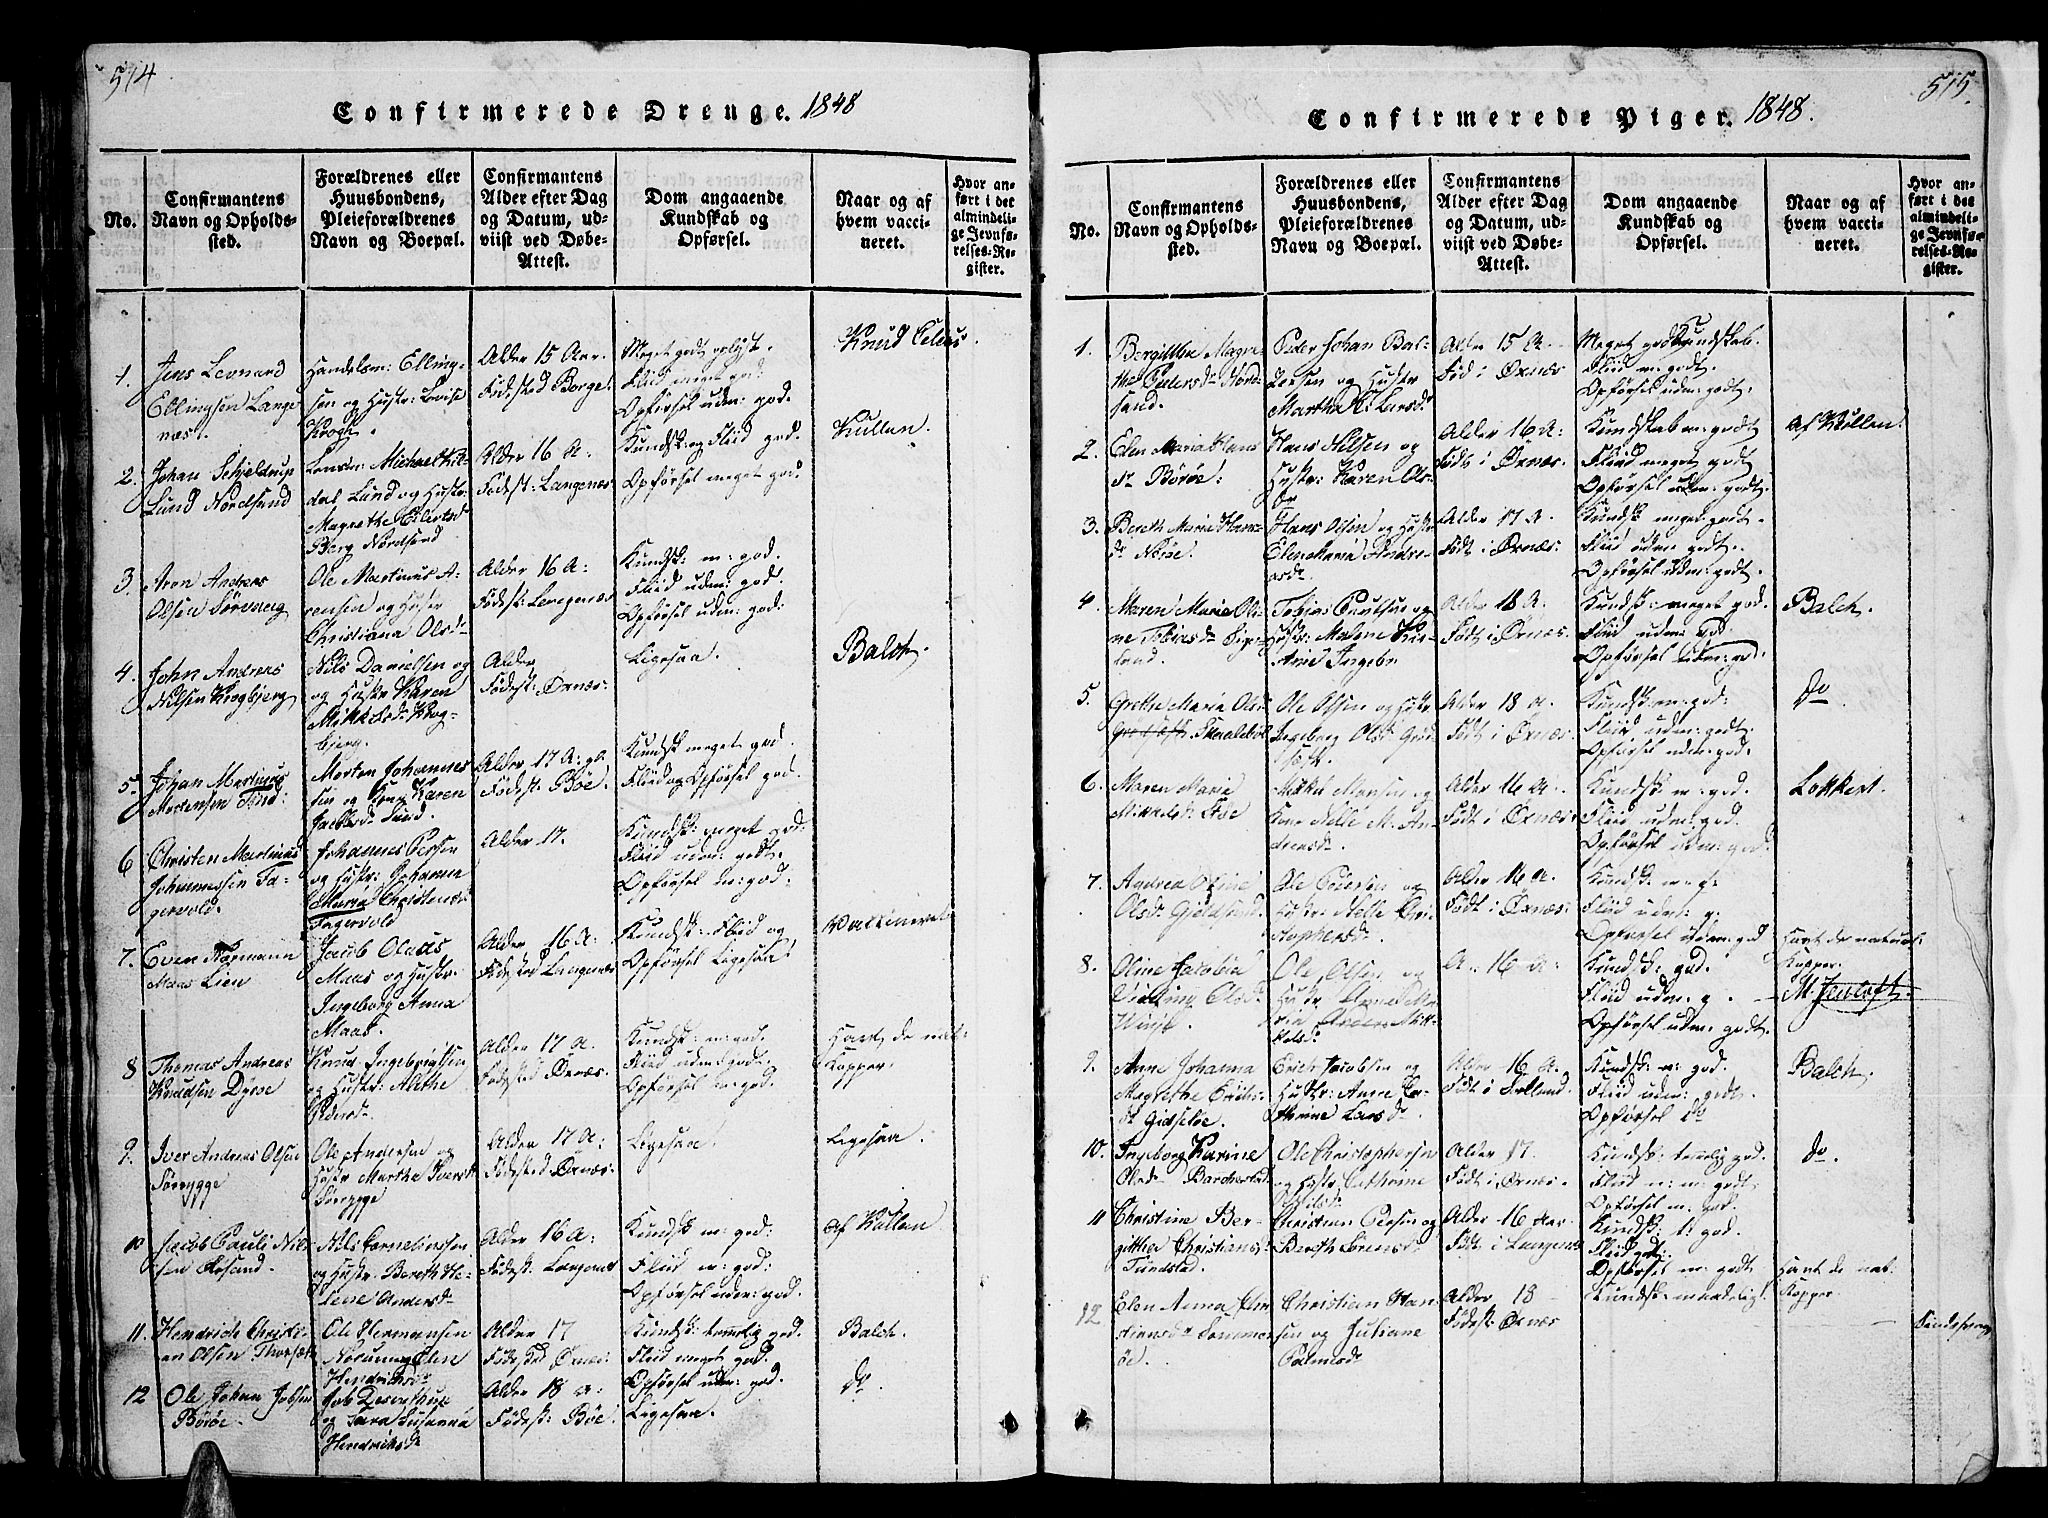 514
Confirmerede Drenge. 1848
No.
Confirmantens
Navn og Opholds-
sted.
Forældrenes eller
Huusbondens,
Pleieforældrenes
Navn og Boepæl.
Confirmantens
Alder efter Dag
og Datum, ud-
viist ved Døbe-
Attest.
Dom angaaende
Kundskab og
Opførsel.
Naar og af
hvem vacci-
neret.
Hvor an-
ført i det
almindeli-
ge Jevnfø-
relses-Re-
gister.
1.
Jens Leonard
Ellingsen Lange
næs.
Handelsm: Elling-
sen og Hustr: Lovise
Krogh.
Alder 15 Aar.
Fødested Borge.
Meget godt oplyst.
Fliid meget god:
Opførsel udm: god.
Knud
2.
Johan Schieldrup
Lund Nordsand
Lensm: Michael
dal Lund og Hustr:
Magrethe Eilertsd
Berg Nordsand
Alder 16 A.
Fødest: Langenæs
Kundsk: og Fliid god.
Opførsel meget god
Kullen.
3.
Aron Andreas
Olsen
Ole Martinus A-
rensen og Hustr
Christiana Olsd.
Alder 16 A.
Fødest: Langenæs
Kundsk: m: god.
Fliid udm: god.
Opførsel udm: god:
4.
John Andreas
Nilsen Krogbjerg
Nils Danielsen og
og Hustr Karen
Mikkelsd. Krog-
bjerg.
Alder
Fødest: Ørnæs.
Ligesaa.
Balch.
5.
Johan Martinus
Mortensen
Morten Johannes
sen og Kone Karen
Jacobsd.
Alder 17 A: gl.
Fødest: Bøe.
Kundsk meget god.
Fliid og Opførsel god.
6
Christen Martinus
Johannessen Fa-
gervold.
Johannes Persen
og Hustr: Johanna
Maria Christensd.
Fagervold
Alder 17.
Kundsk: meget god:
Fliid udm: godt.
Opførsel m: god:
7.
Even Normann
Maas Lien
Jacob Olaus
Maas og Hustr.
Ingeborg Anna
Maas.
Alder 16 A:
Fødested Langenæs
Kundsk: Fliid og
Opførsel Ligesaa
Vaccineret
8
Thomas Andreas
Knudsen Dyrøe
Knud Ingebrigtsen
og Hustr: Alethe
Pedersd.
Alder 17 A.
Fødested Ørnæs.
Kundsk: m: god.
Fliid udm: godt.
Opførsel m: god.
Havt de nat:
Kopper.
9.
Iver Andreas Olsen
Sørrygge
Ole Andersen og
Hustr Marthe Iversd.
Sørrygge
Alder 17 A:
Fødested Ørnæs.
Ligesaa.
Ligesaa.
10
Jacob Pauli Nil-
sen
Nils Cornelinssen
og Hustr. Bereth He-
lene Andersd
Alder 16 A:
Fødest: Langenæs
Kundsk m: god:
Fliid m: god:
Opførsel udm: god.
Af Kullen
11.
Hendrich Christi-
an Olsen
Ole Hermansen
Elen
Hendriksd.
Alder 17
Fødested Ørnæs:
Kundsk: temmelig god.
Fliid meget god.
Opførsel udm: god.
Balch.
12
Ole Johan Jobsen
Børøe.
Job
og Sara Susanna
Hendriksd
Alder 18 A:
Fødest: Bøe.
Ligesaa.
do.
515.
Confirmerede Piger. 1848.
No.
Confirmantens
Navn og Opholds-
sted.
Forældrenes eller
Huusbondens,
Pleieforældrenes
Navn og Boepæl.
Confirmantens
Alder efter Dag
og Datum, ud-
viist ved Døbe-
Attest.
Dom angaaende
Kundskab og
Opførsel.
Naar og af
hvem vacci-
neret.
Hvor an-
ført i det
almindeli-
ge Jevnfø-
relses-Re-
gister.
1.
Bergitthe Magre-
the Pedersd. Nord-
sand.
Peder Johan Bal-
og Hustr
Martha E: Larsd.
Alder 15 A.
Fød i Ørnæs
Meget god Kundskab.
Fliid m: godt.
Opførsel udm: godt.
2.
Elen Maria Hans
d. Børøe:
Hans Nilsen og
Hustr: Karen Ols-
Alder 16 A:
Født i Ørnæs.
Kundskab m: godt
Fliid meget godt
Opførsel udm: godt.
Af Kullen.
3.
Bereth Maria Hans
d.
Hans Olsen og Hustr
Elen Maria Andre-
asd.
Alder 17 A.
Født i Ørnæs:
Kundsk meget godt.
Fliid udm: godt.
Opførsel udm: godt.
4.
Maren Maria Ol-
ne Tobiasd.
land.
Tobias Paulsen og
Hustr: Malene
Ingebr
Alder 18 A.
Født i Ørnæs.
Kundsk: meget god.
Fliid udm: god.
Opførsel udm: god.
Balch.
5.
Grethe Maria Ols.
Ole Olsen og Hustr
Ingeborg Olsd.
Alder 18 A.
Født i Ørnæs.
Kundsk: m: god:
Fliid udm: godt:
Opførsel udm: god:
do
6.
Maren Maria
Mikkelsd.
Mikkel og
Kone Nelle M. An-
dreasd.
Alder 16 A.
Født i Ørnæs:
Kundsk m: god.
Fliid udm: god.
Opførsel udm: god.
Lokkert.
7.
Andrea
Olsd. Gjeldsund.
Ole Pedersen og
Hustr: Nelle Chri-
stophersd.
Alder 16 A.
Født i Ørnæs:
Kundsk: m: g:
Fliid udm: g:
Opførsel udm: god
8.
Oline Jacobia
Olsd.
Ole Olsen og
Hustr Anne Ma-
ria Mik-
kelsd:
A. 16 A:
Kundsk: god.
Fliid udm: g.
Opførsel udm: godt.
Havt de naturl:
Kopper.
9.
Anne Johanna
Magrethe Erichs-
d. Gidseløe.
Erich Jacobsen og
Hustr: Anne Ca-
thrine Larsd.
Alder 16 A.
Født i
Kundsk: m: god.
Fliid udm: godt.
Opførsel do
Balch.
10.
Ingeborg Karine
Olsd.
Ole Christophersen
og Hustr: Cathrine
Nilsd.
Alder 17.
Født i Ørnæs.
Kundsk: temlig god.
Fliid m: m: godt.
Opførsel m: god.
do.
11
Christine Ber-
gitthe Christians-
Tundstad.
Christian Persen og
Bereth Sørensd.
Alder 16 Aar.
Født i Langenæs
Kundsk: t: god.
Fliid godt.
Opførsel m: godt
12
Elen Anna Chri-
stiansd. Sommer
øe.
Christian Han-
sen og Juliane
Alder 18
Fødest: Ørnæs
Kundsk: maadeligt.
Havt de nat.
Kopper.